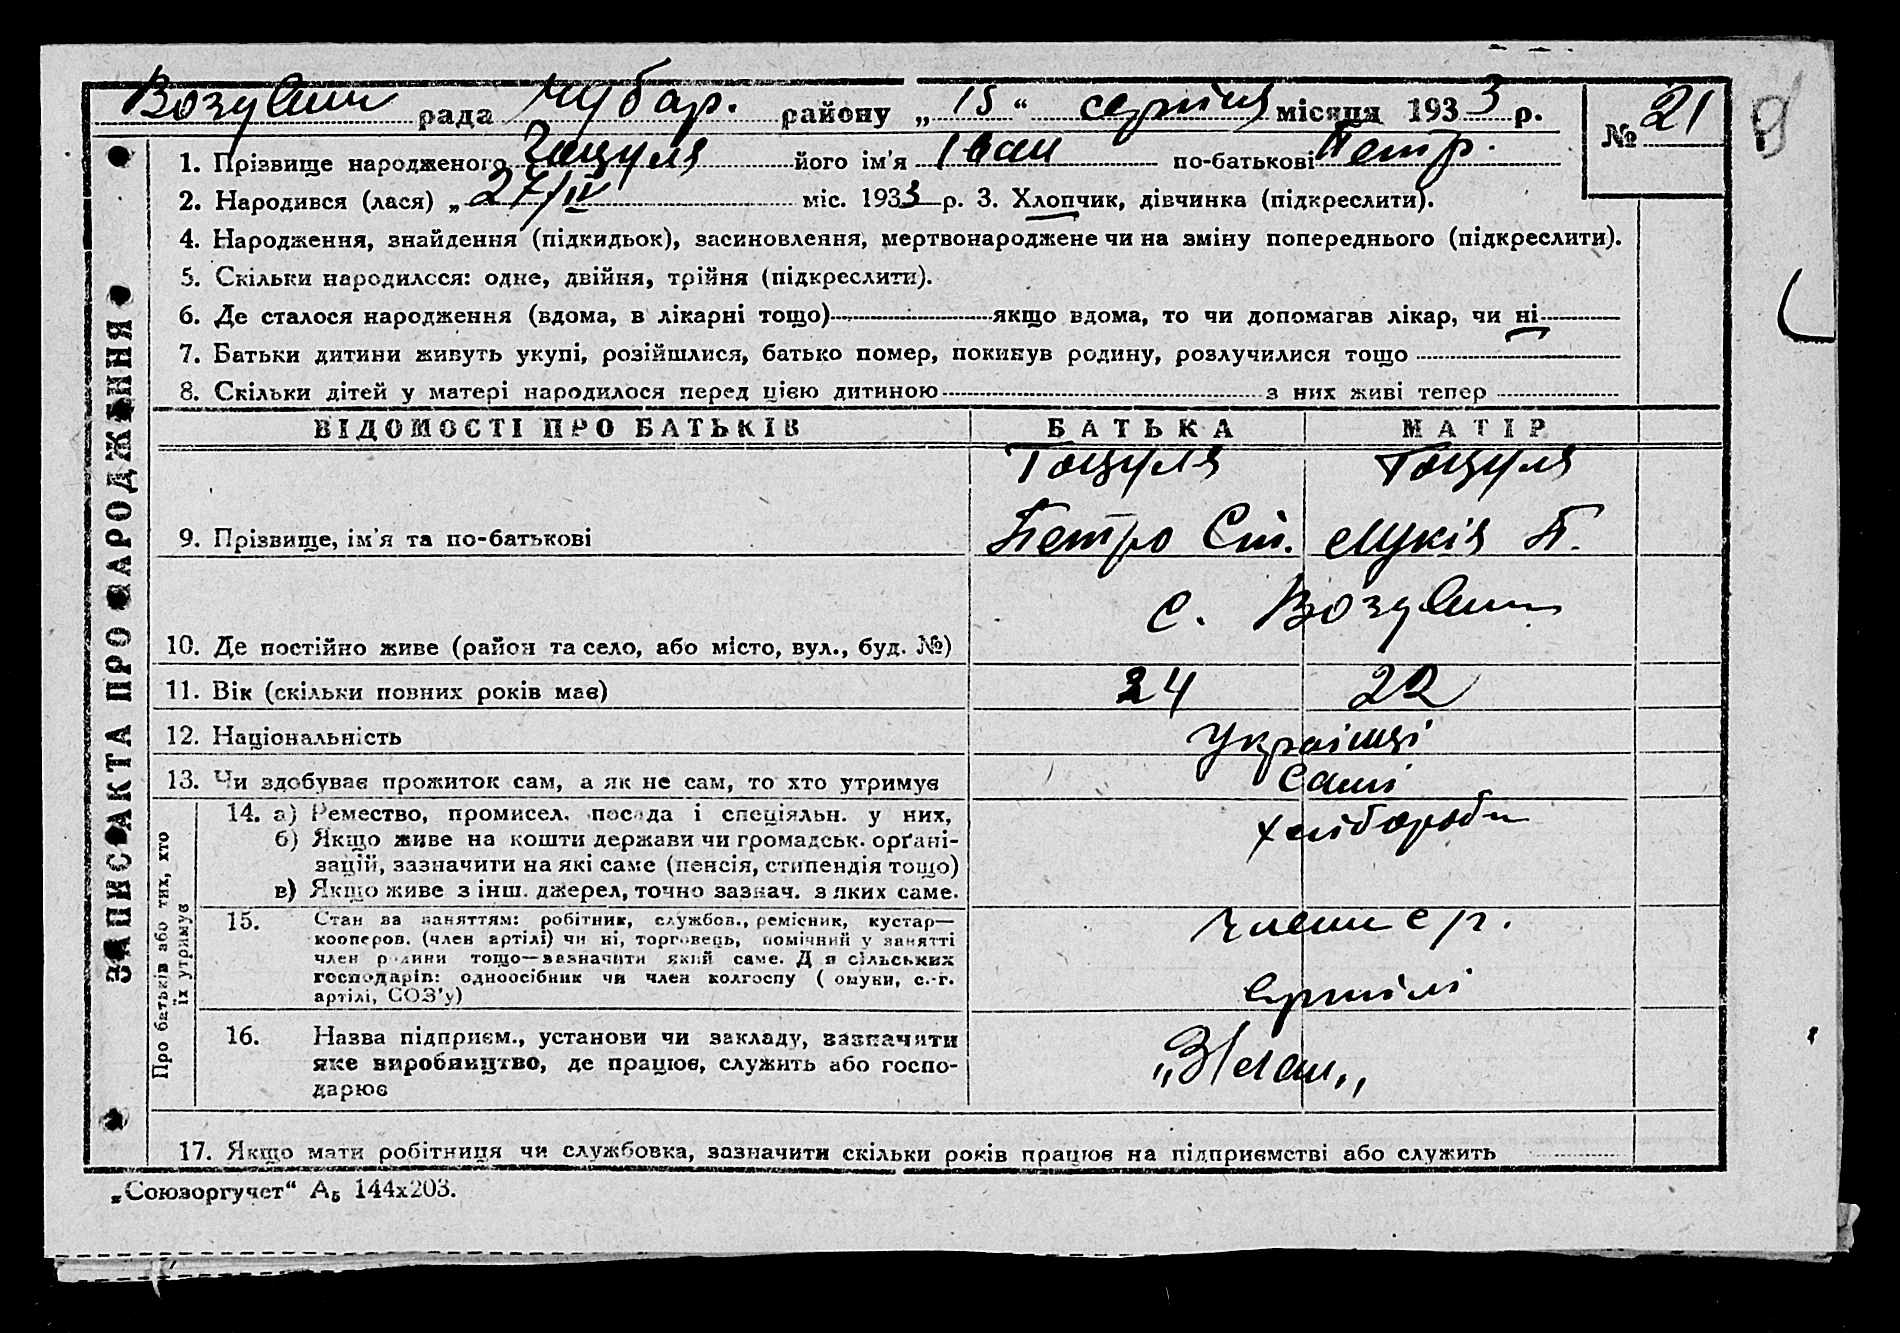 Возувam рада Чубар. району „ 15 “ серпня місяця 1933 р.
№ 21
1. Прізвище народженого Гацуля його ім'я Іван по-батькові Петр.
2. Народився (лася) „ 27/IV міс. 1933 р. 3. Хлопчик, дівчинка (підкреслити).
4. Народження, знайдення (підкидьок), засиновлення, мертвонароджене чи на зміну попереднього (підкреслити).
5. Скільки народилося: одне, двійня, трійня (підкреслити).
6. Де сталося народження (вдома, в лікарні тощо) якщо вдома, то чи допомагав лікар, чи ні
7. Батьки дитини живуть укупі, розійшлися, батько помер, покинув родину, розлучилися тощо
8. Скільки дітей у матері народилося перед цією дитиною з них живі тепер
ЗАПИС АКТА ПРО НАРОДЖЕННЯ
ВІДОМОСТІ ПРО БАТЬКІВ БАТЬКА МАТІР
Гацуля Гацуля
9. Прізвище, ім'я та по-батькові Петро Ст. Лукія П.
с.
10. Де постійно живе (район та село, або місто, вул., буд. №)
11. Вік (скільки повних років має) 24 22
12. Національність Українці
13. Чи здобуває прожиток сам, а як не сам, то хто утримує Самі
Про батьків або тих, хто
їх утримує
14. а) Ремество, промисел, посада і спеціяльн. у них, хлібороби
б) Якщо живе на кошти держави чи громадськ. орґані-
зацій, зазначити на які саме (пенсія, стипендія тощо)
в) Якщо живе з інш. джерел, точно зазнач. з яких саме.
15. Стан за заняттям: робітник, службов., ремісник, кустар— члени
кооперов. (член артілі) чи ні, торговець, помічний у занятті
член родини тощо—зазначити який саме. Для сільських
господарів: одноосібник чи член колгоспу ( омуни, с.-г. артілі
артілі, СОЗ'у)
16. Назва підприєм., установи чи закладу, зазначити
яке виробництво, де працює, служить або госпо-
дарює
17. Якщо мати робітниця чи службовка, зазначити скільки років працює на підприємстві або служить
„Союзоргучет“ А₅ 144х203.